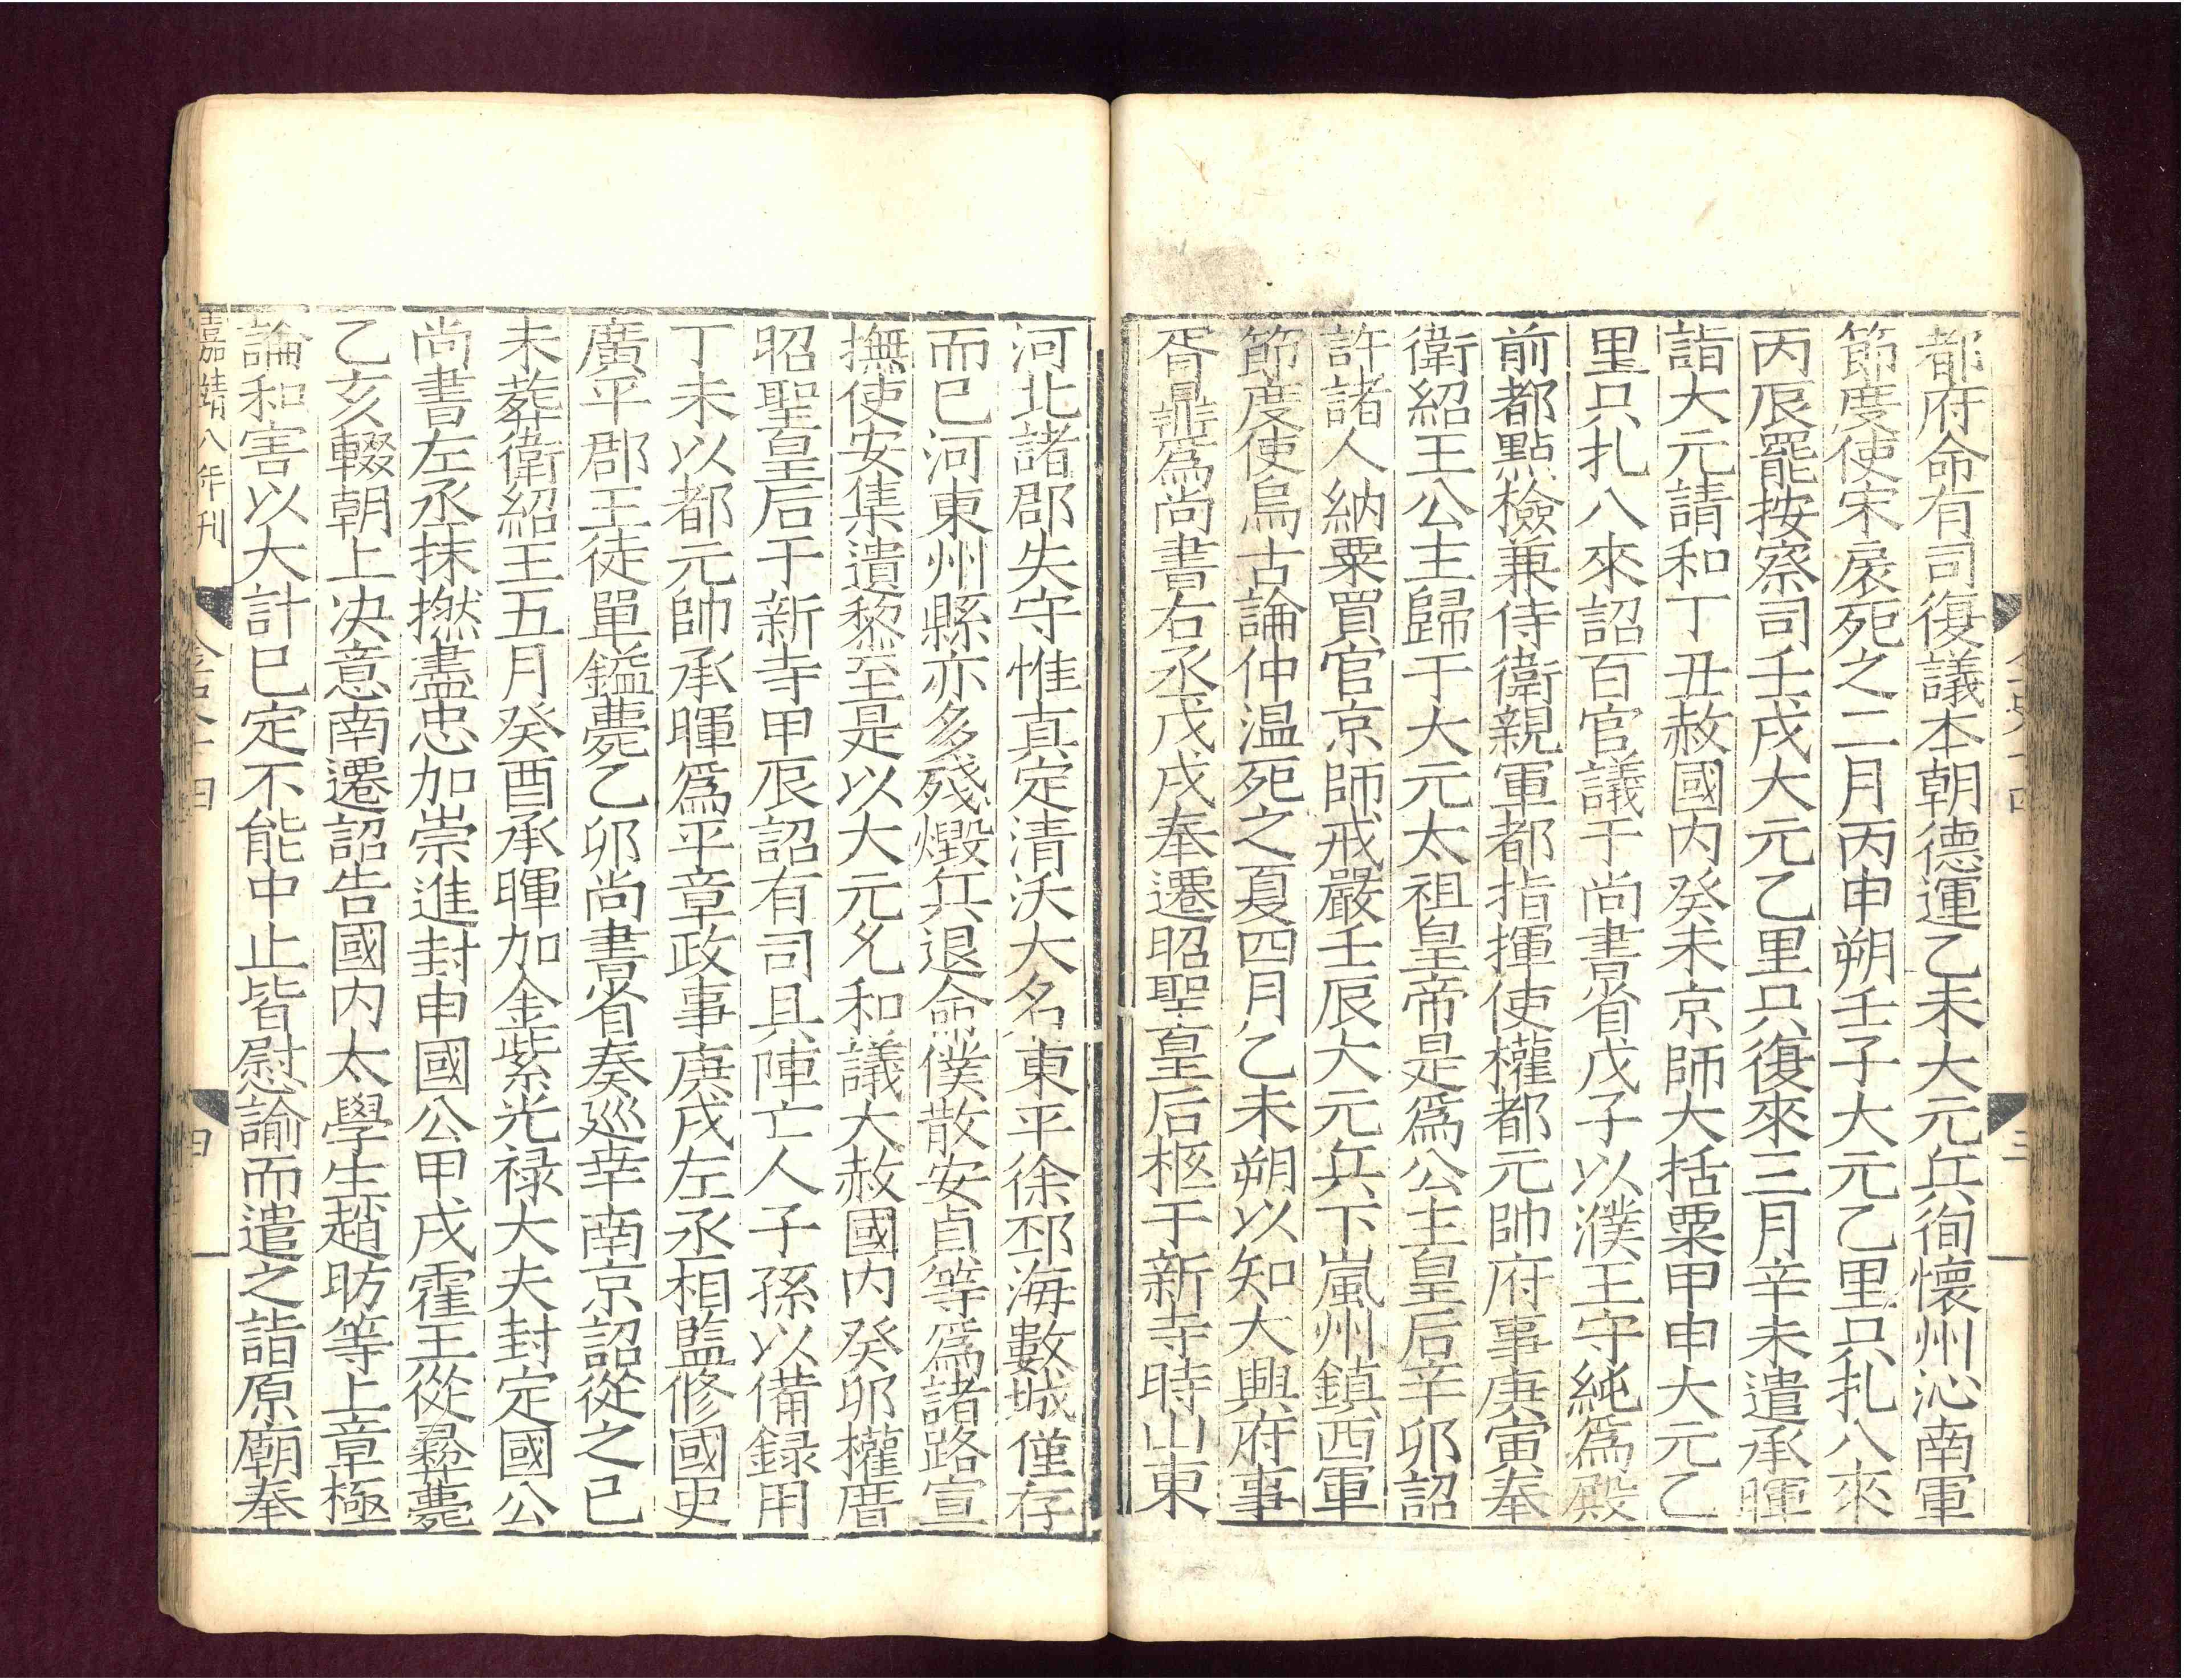 都府命有司復議本朝德運乙未大元兵徇懷州沁南軍
節度使宋扆死之二月丙申朔壬子大元乙里只扎八來
丙辰罷按察司壬戌大元乙里只復來三月辛未遣承暉
詣大元請和丁丑赦國內癸未京師大括粟甲申大元乙
里只扎八來詔百官議于尚書省戊子以濮王守純爲殿
前都點檢兼侍衛親軍都指揮使權都元帥府事庚寅奉
衛紹王公主歸于大元太祖皇帝是爲公主皇后辛卯詔
許諸人納粟買官京師戒嚴壬辰大元兵下嵐州鎮西軍
節度使烏古論仲温死之夏四月乙未朔以知大興府事
胥鼎爲尚書右丞戊戌奉遷昭聖皇后柩于新寺時山東
河北諸郡失守惟真定清沃大名東平徐邳海數城僅存
而已河東州縣亦多殘燬兵退命僕散安貞等爲諸路宣
撫使安集遺黎至是以大元允和議大赦國內癸卯權厝
昭聖皇后于新寺甲辰詔有司具陣亡人子孫以備録用
丁未以都元帥承暉爲平章政事庚戌左丞相監修國史
廣平郡王徒單鎰薨乙卯尚書省奏巡幸南京詔從之己
未葬衛紹王五月癸酉承暉加金紫光禄大夫封定國公
尚書左丞抹撚盡忠加崇進封申國公甲戌霍王從彝薨
乙亥輟朝上决意南遷詔告國内太學生趙昉等上章極
論和害以大計已定不能中止皆慰諭而遣之詣原廟奉
嘉靖八年刊
金史十四
四